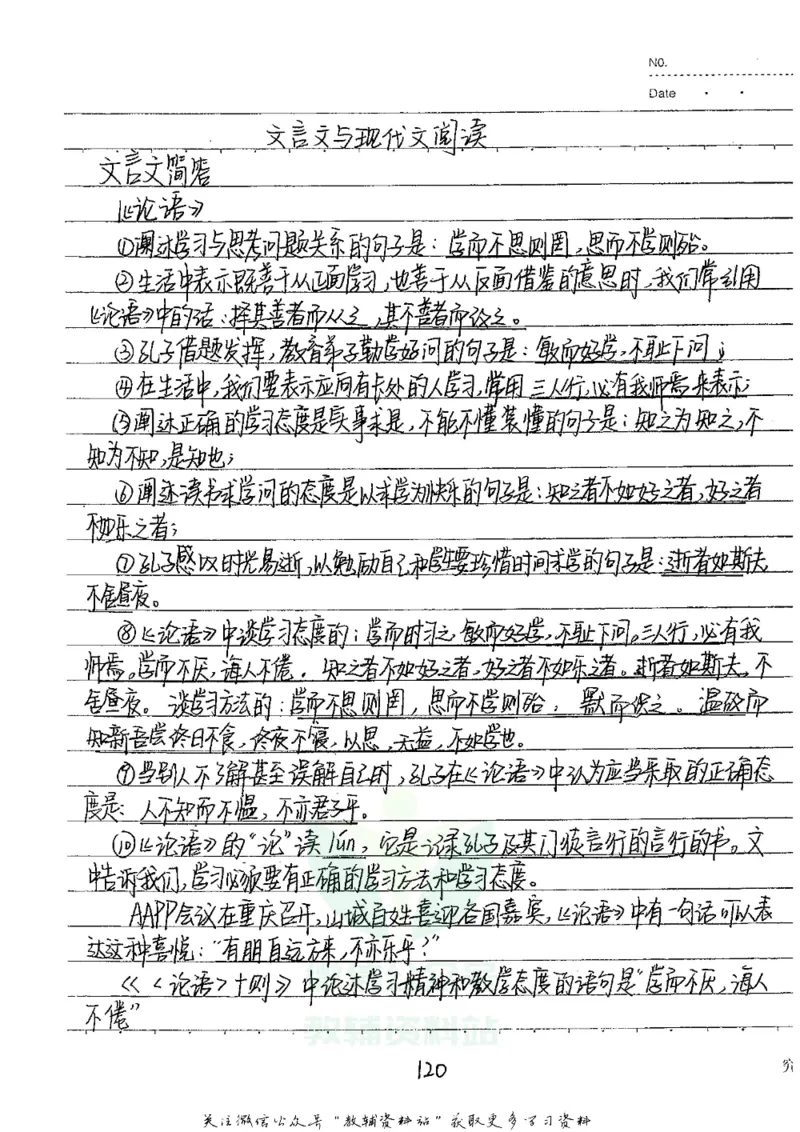 NO.
Date
文言文与现代文阅读
文言文简答
《论语》
①阐述学习与思考问题关系的句子是：学而不思则罔，思而不学则殆。
②生活中表示既善于从正面学习，也善于从反面借鉴的意思时，我们常引用
《论语》中的话：择其善者而从之，其不善者而改之。
③孔子借题发挥，教育弟子勤学好问的句子是：敏而好学，不耻下问；
④在生活中，我们要表示应向有长处的人学习，常用三人行，必有我师焉来表示；
⑤阐述正确的学习态度是实事求是，不能不懂装懂的句子是：知之为知之，不
知为不知，是知也；
⑥阐述读书求学问的态度是以求学为快乐的句子是：知之者不如好之者，好之者
不如乐之者；
⑦孔子感叹时光易逝，以勉励自己和学生要珍惜时间求学的句子是：逝者如斯夫
不舍昼夜。
⑧《论语》中谈学习态度的：学而时习之 敏而好学，不耻下问。三人行，必有我
师焉。学而不厌，诲人不倦。知之者不如好之者，好之者不如乐之者。逝者如斯夫。不
舍昼夜。谈学习方法的：学而不思则罔，思而不学则殆，默而识之。温故而
知新吾尝终日不食，终夜不寝，以思，无益，不如学也。
⑨当别人不了解甚至误解自己时，孔子在《论语》中认为应当采取的正确态
度是：人不知而不愠，不亦君子乎。
⑩《论语》的“论”读lún，它是记录孔子及其门徒言行的言行的书。文
中告诉我们，学习必须要有正确的学习方法和学习态度。
AAPP会议在重庆召开，山城百姓喜迎各国嘉宾，《论语》中有一句话可以表
达这种喜悦：“有朋自远方来，不亦乐乎？”
《〈论语〉十则》中论述学习精神和教学态度的语句是“学而不厌，诲人
不倦”
教辅资料站
120
关注微信公众号“教辅资料站”获取更多学习资料